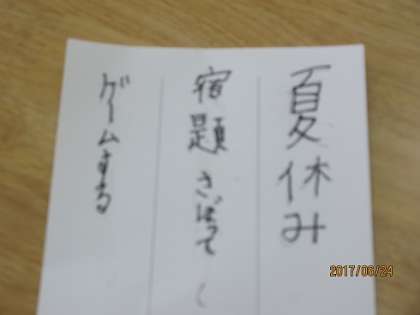 夏休み
宿題さぼって
ゲームする
2017/06/24